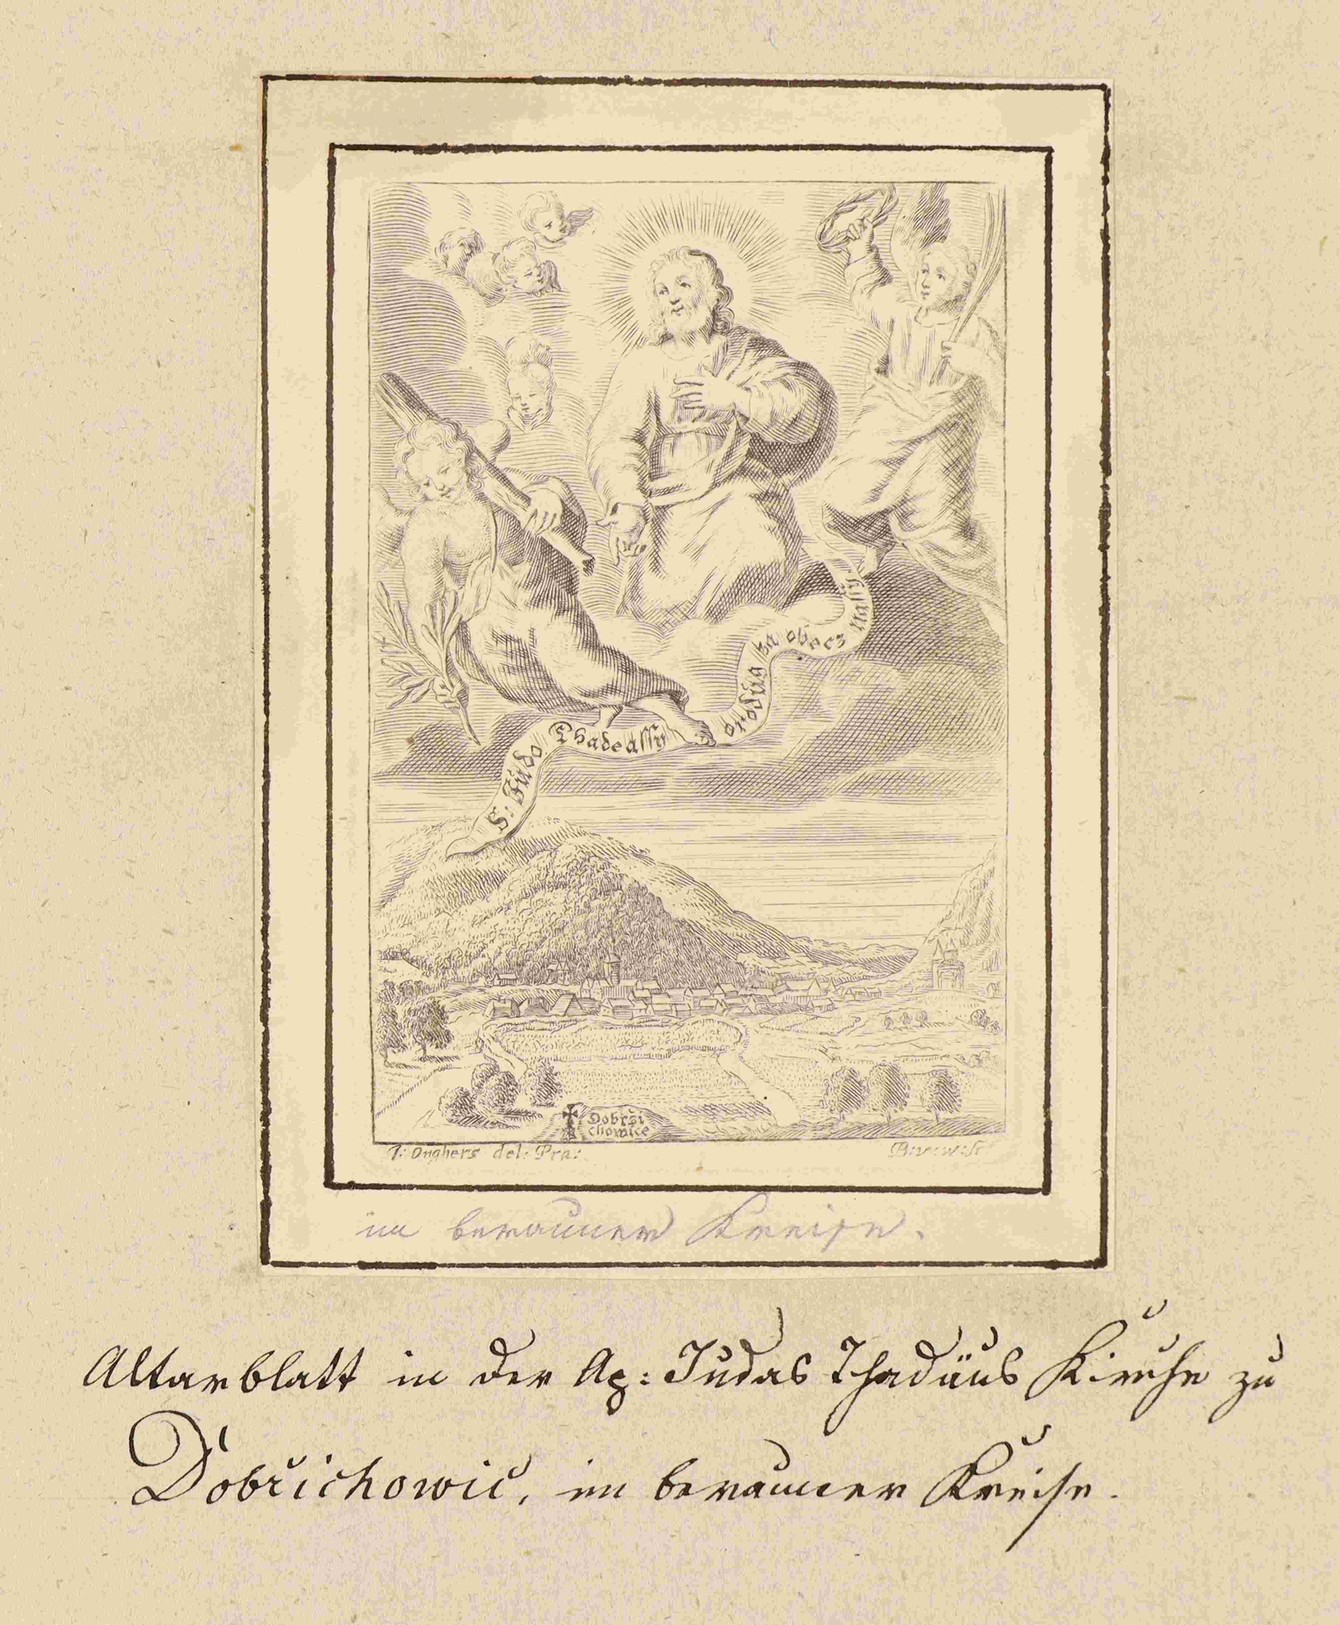 S: Júdo Thadeassy oroduǵ za obecz nassy
Dobrži
chowice
J: Onghers del: Pra:
im berauner Kreise.
Altarblatt in der Ap: Judas Thadäus Kirche zu
Dobřichowic, im berauner Kreise.